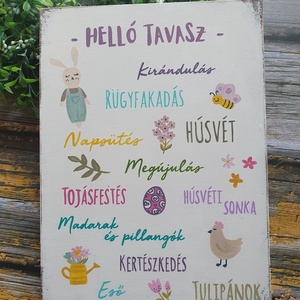 - HELLÓ TAVASZ -
Kirándulás
RÜGYFAKADÁS
Napsütés
HÚSVÉT
Megújulás
TOJÁSFESTÉS
HÚSVÉTI
SONKA
Madarak
és pillangók
KERTÉSZKEDÉS
Eső
TULIPÁNOK